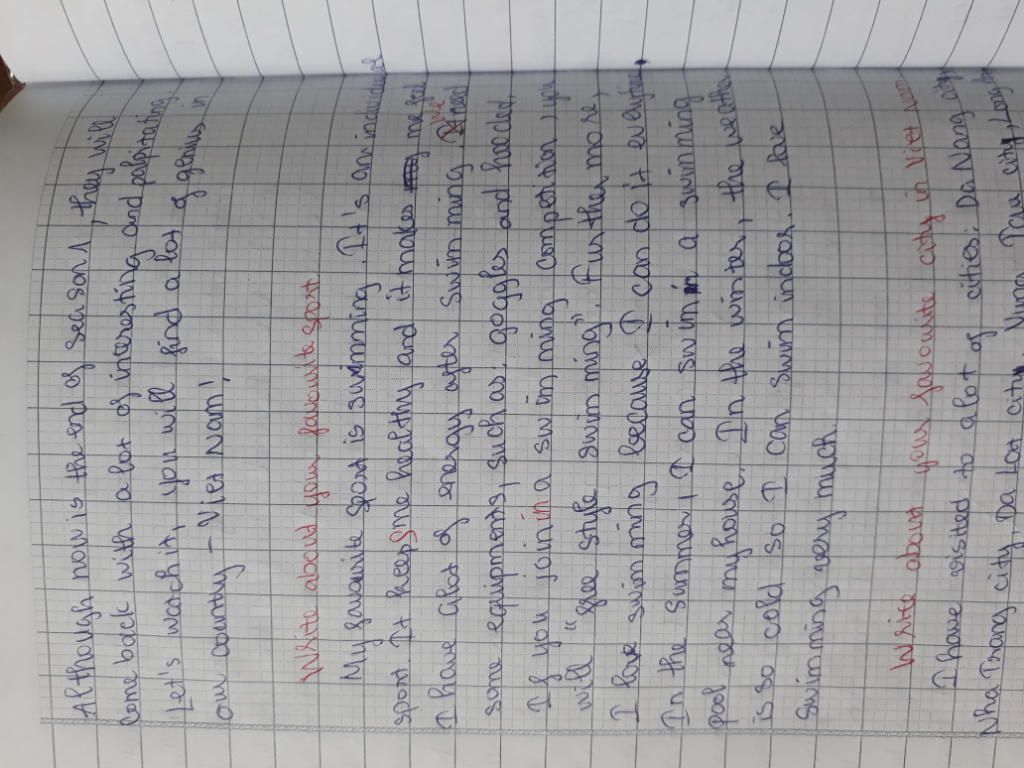 Although now is the end of season 1, they will
come back with a lot of interesting and palpitating
Let's watch it, you will find a lot of genius in
our country - Viet Nam!
Write about your favourite sport
My favourite sport is swimming. It's an individual
sport. It keeps me healthy and it makes me feel
I have a lot of energy after swimming. We need
some equipments, such as: goggles and
If you join in a swimming competition, you
will "free style swimming". Furthermore,
I love swimming because I can do it everytime.
In the summer, I can swim in a swimming
pool near my house. In the winter, the weather
is so cold so I can swim indoor. I love
swimming very much.
Write about your favourite city in Viet Nam
I have visited to a lot of cities: Da Nang city,
Nha Trang city, Da Lat city,